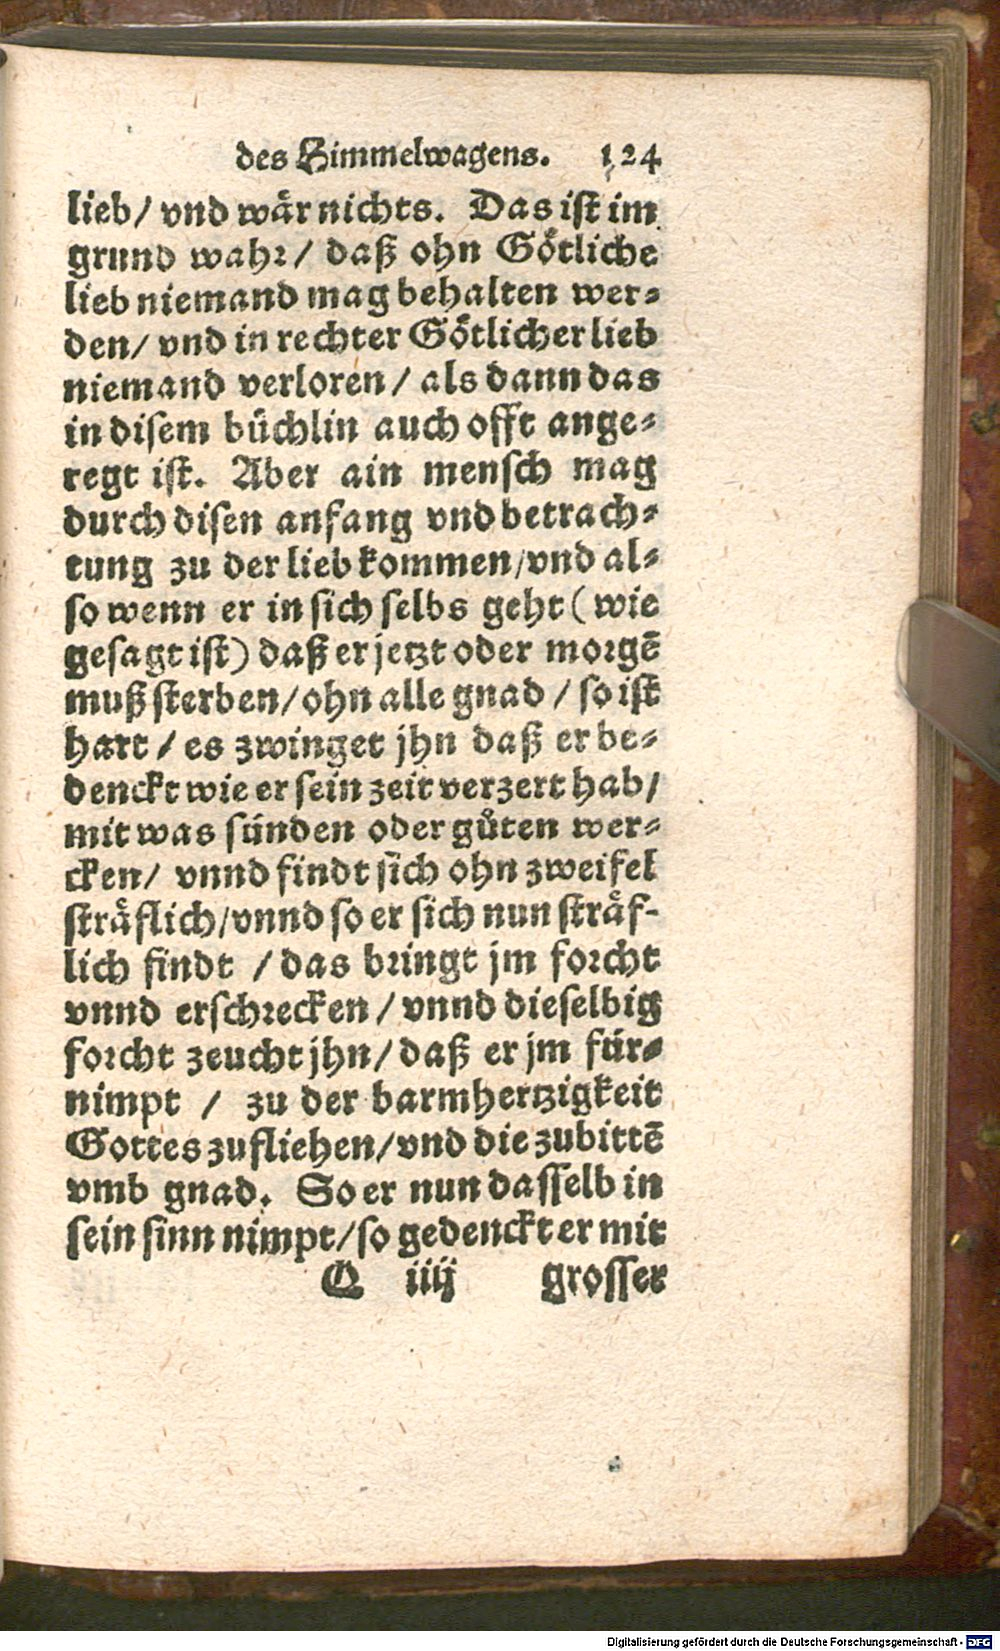 des Himmelwagens. 124
lieb/ vnd wår nichts. Das ist im
grund wahr/ daß ohn Götliche
lieb niemand mag behalten wer⸗
den/ vnd in rechter Götlicher lieb
niemand verloren/ als dann das
in disem büchlin auch offt ange⸗
regt ist. Aber ain mensch mag
durch disen anfang vnd betrach⸗
tung zu der lieb kommen/vnd al⸗
so wenn er in sich selbs geht (wie
gesagt ist) daß er jetzt oder morgẽ
muß sterben/ohn alle gnad/ so ist
hart/ es zwinget jhn daß er be⸗
denckt wie er sein zeit verzert hab/
mit was sünden oder gůten wer⸗
cken/ vnnd findt sich ohn zweifel
stråflich/vnnd so er sich nun stråf-
lich findt / das bringt jm forcht
vnnd erschrecken/ vnnd dieselbig
forcht zeucht jhn/ daß er jm für⸗
nimpt / zu der barmhertzigkeit
Gottes zufliehen/vnd die zubittẽ
vmb gnad. So er nun dasselb in
sein sinn nimpt/so gedenckt er mit
Q iiij grosser
Digitalisierung gefördert durch die Deutsche Forschungsgemeinschaft - DFG